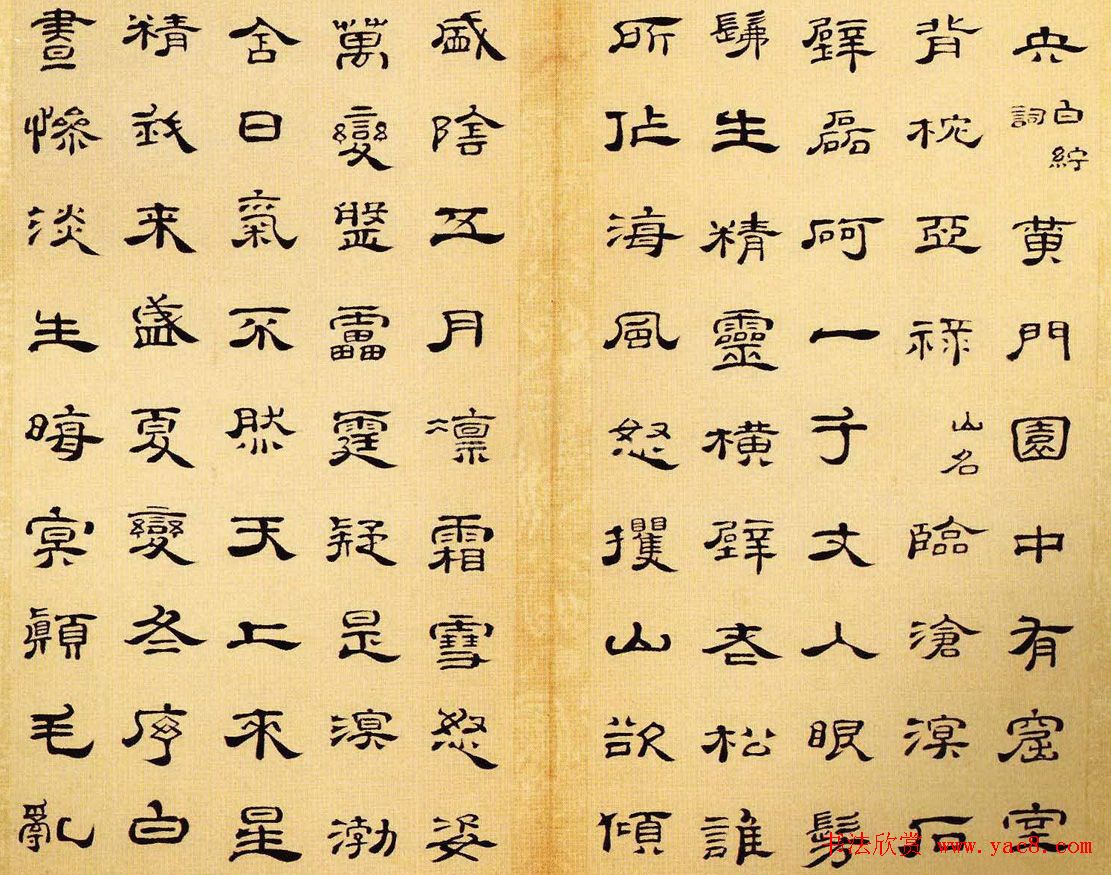 央 白紵詞 黃門園中有窟室
背枕亞祿 山名 臨滄溟石
壁磊砢一子丈人眼髣
髴生精靈橫壁老松誰
所作海風怒攫山欲傾
盛陰五月凛霜雪怒姿
萬變盤靁霆疑是溟渤
含日氣不然天上來星
精我来盛夏變冬序白
晝慘淡生晦冥顛毛亂
书法欣赏 www.yac8.com